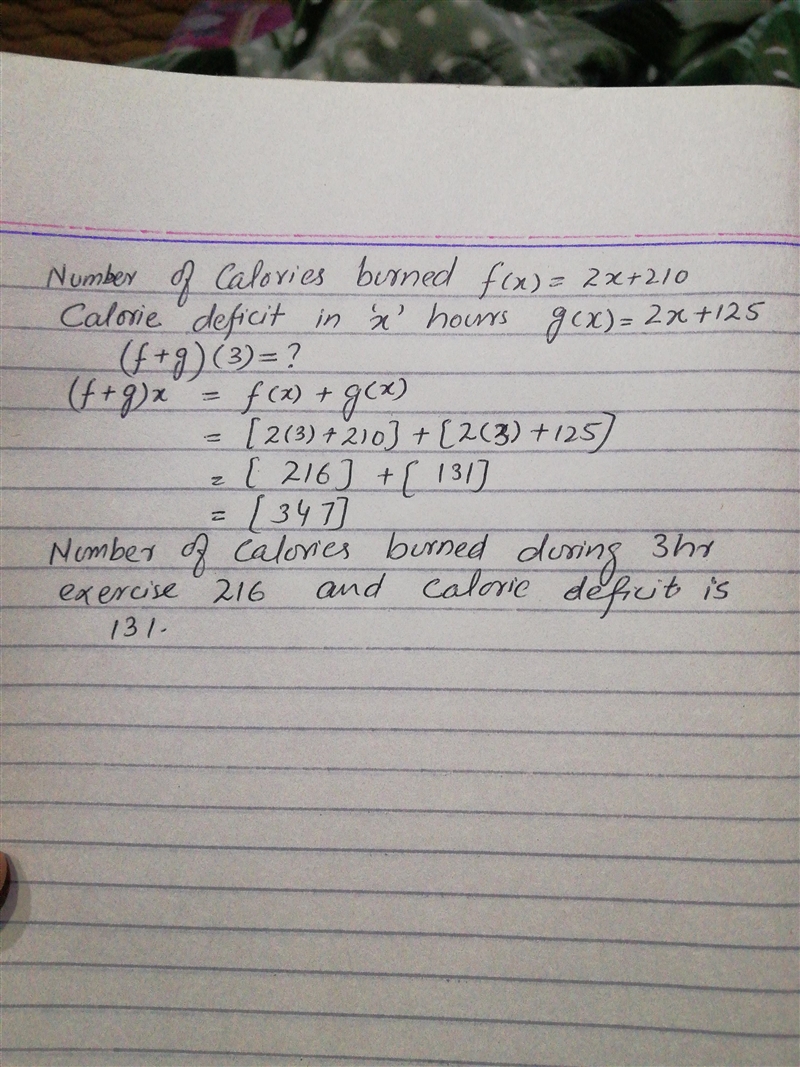 Number of Calories burned f(x) = 2x+210
Calorie deficit in 'x' hours g(x) = 2x+125
(f+g)(3) = ?
(f+g)x = f(x) + g(x)
= [2(3)+210] + [2(3)+125]
= [216] + [131]
= [347]
Number of Calories burned during 3hr
exercise 216 and calorie deficit is
131.